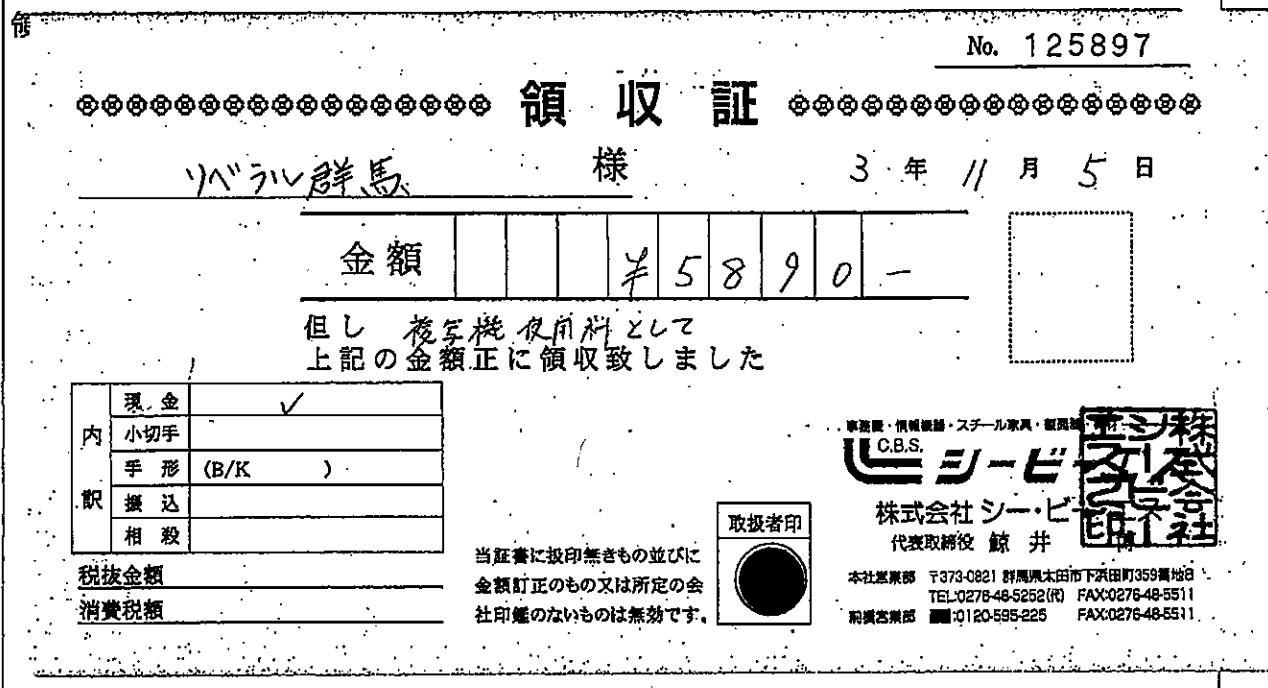 領
No. 125897
領収証
リベラル群馬 様
3年11月5日
金額 ¥5890-
但し 複写機使用料として
上記の金額正に領収致しました
内訳
現金 ✓
小切手
手形 (B/K )
振込
相殺
税抜金額
消費税額
当証書に扱印無きもの並びに
金額訂正のもの又は所定の会
社印鑑のないものは無効です。
取扱者印
事務機・情報機器・スチール家具・
C.B.S.
シービー
株式会社 シー・ビー
代表取締役 鯨井 博
本社営業部 〒373-0821 群馬県太田市下浜田町359番地8
TEL:0276-46-5252(代) FAX:0276-48-5511
前橋営業部 :0120-595-225 FAX:0276-48-5511